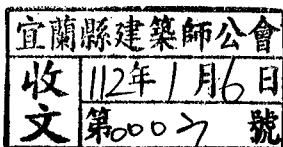 宜蘭縣建築師公會
收文
112年1月6日
第0007號